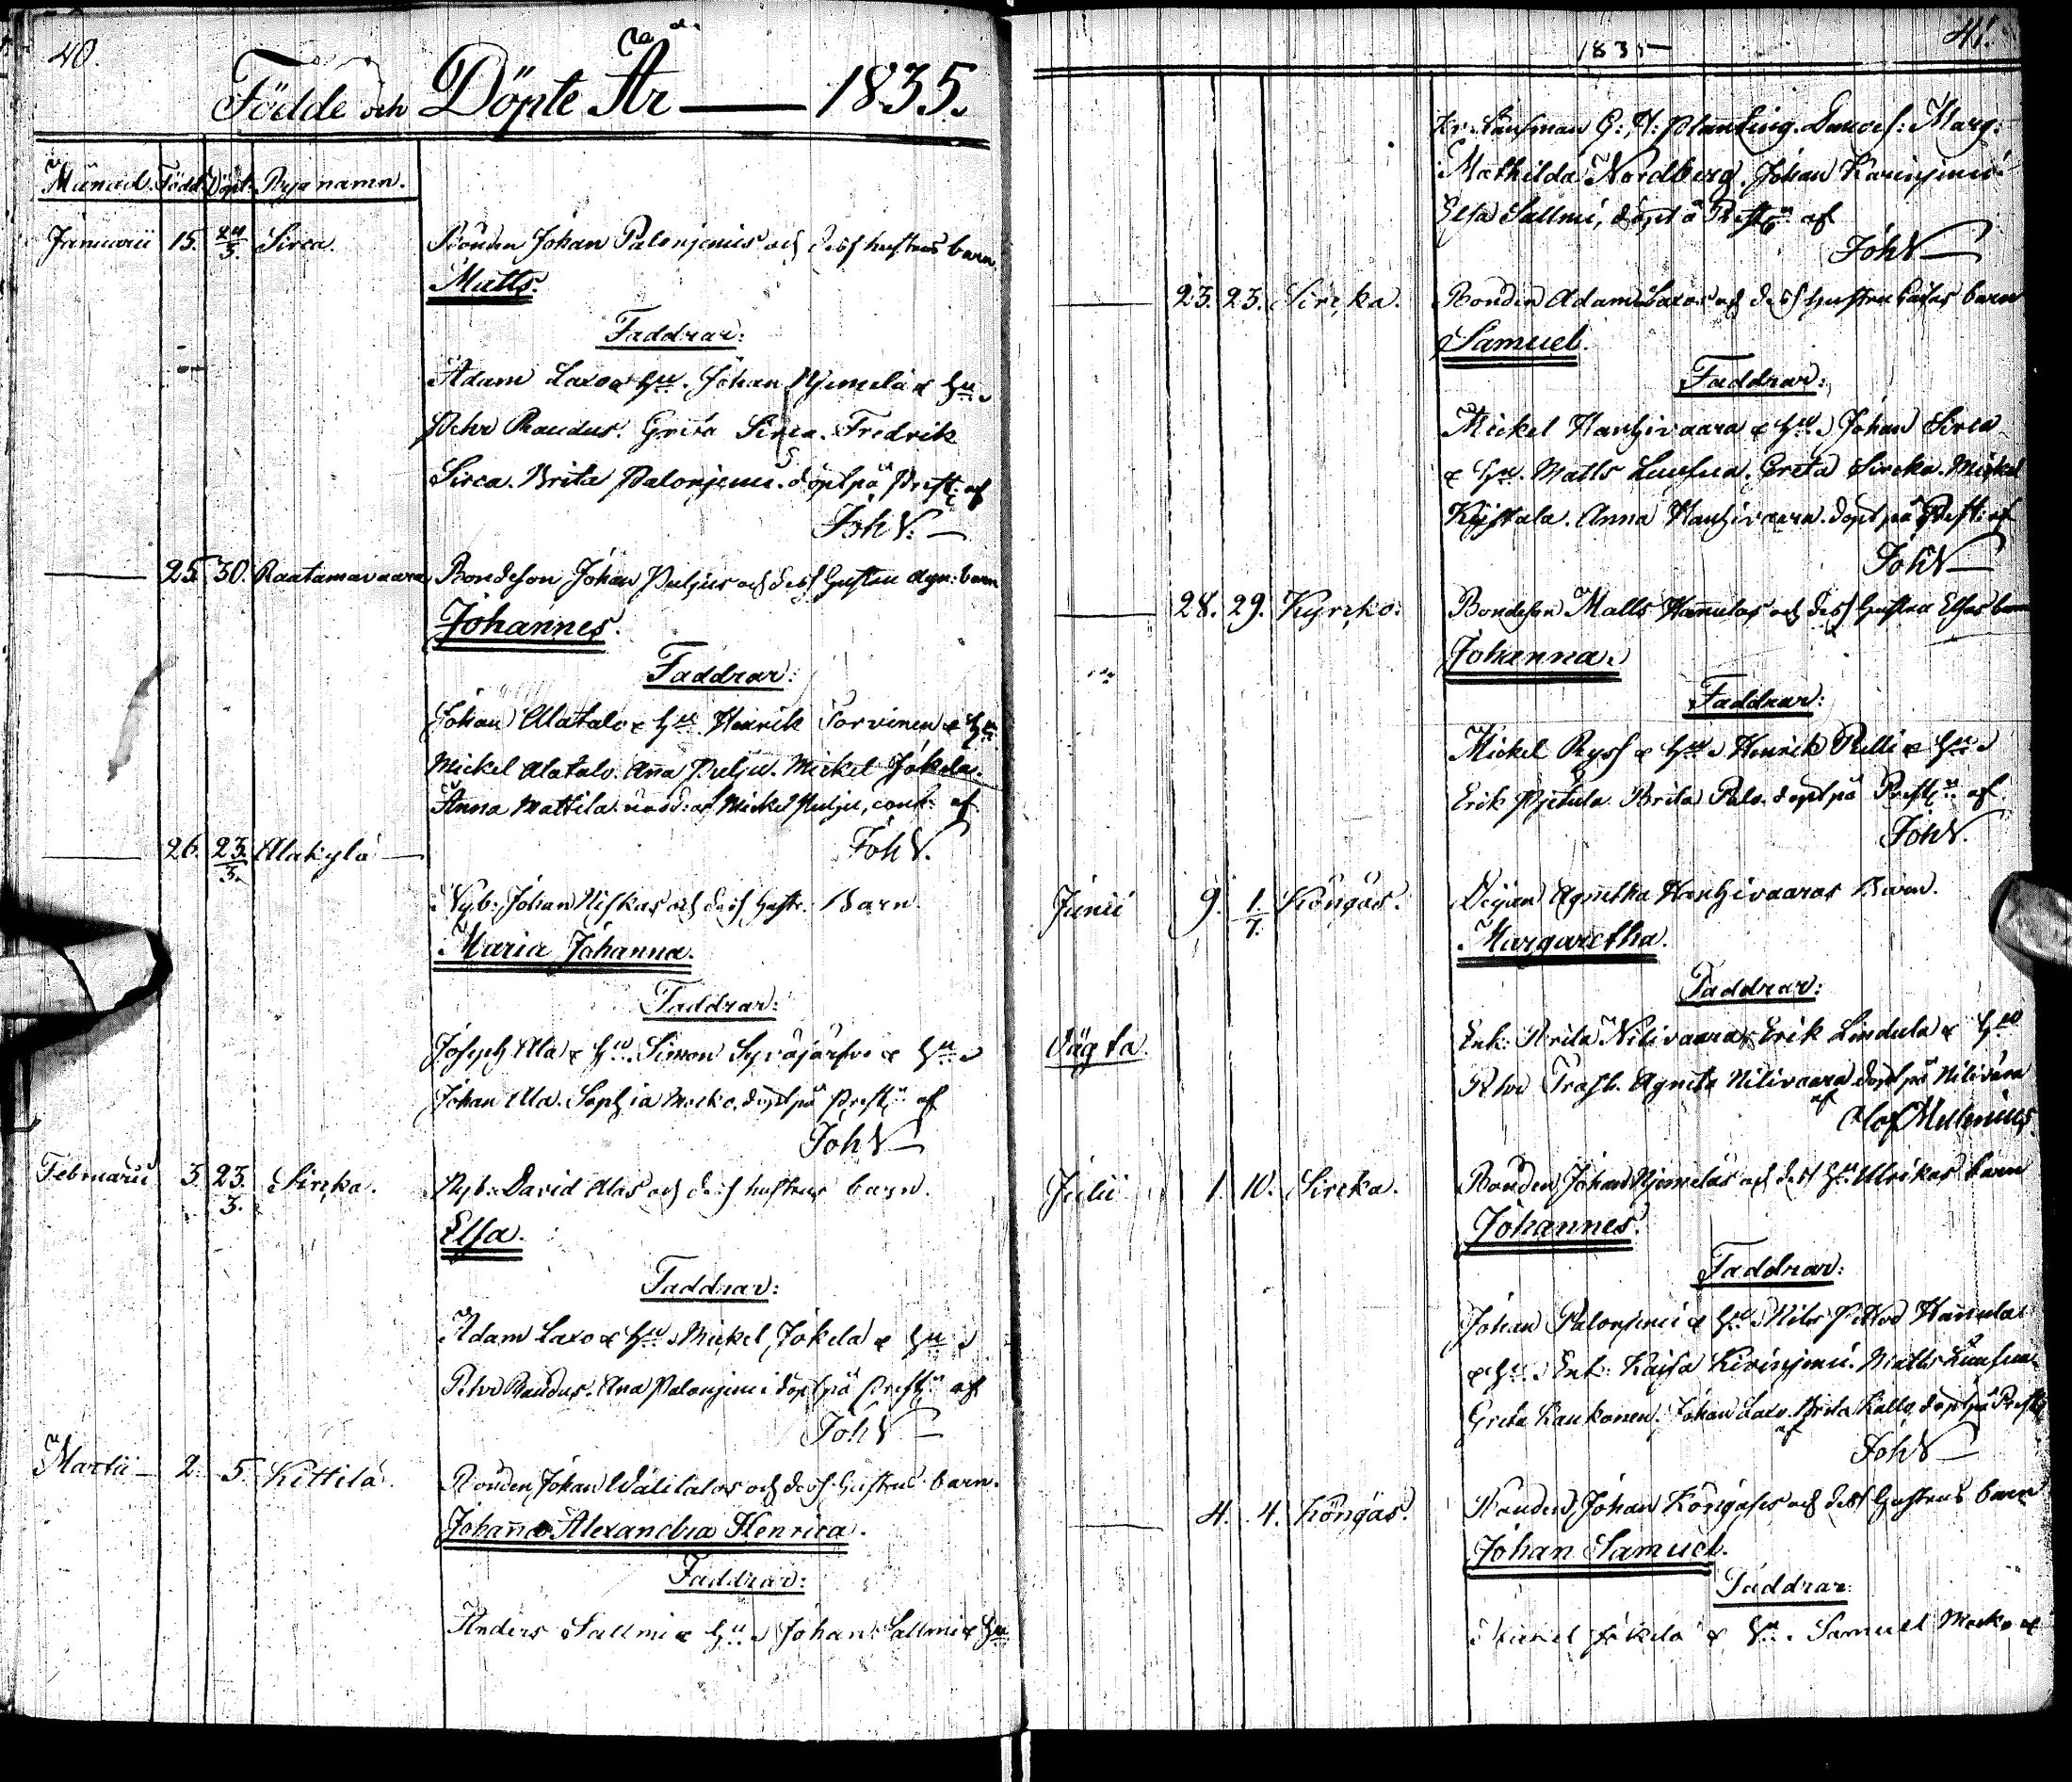 40.
Födde och Döpte År — 1835.
Månad. Född. Döpt. Byg namn.
Januarii 15. 24/3. Sirca. Bonden Johan Palonjemis och dess hustrus barn.
Matts.
Faddrar:
Adam Laxo & hu. Johan Njemelä & hu.
Pehr Raudus. Greta Sirca. Fredrik
Sirca. Brita Palonjemi. döpt på Prestg: af
Joh W.
— 25. 30. Raatamavaara Bondeson Johan Puljus och dess hustru Agn: barn
Johannes.
Faddrar:
Johan Alatalo & hu. Henrik Torvinen & hu.
Mickel Alatalo. Anna Pulju. Mickel Jokela.
Anna Mattila. nöddöpt af Mickel Pulju, conf: af
Joh W.
— 26. 23/3. Alakylä —
Nyb: Johan Niskas och dess hustr: Barn.
Maria Johanna.
Faddrar:
Joseph Ala & hu. Simon Syväjärfvi & hu.
Johan Ala. Sophia Mocko. döpt på Prestg: af
Joh W
Februarii 3. 23/3. Sircka. Nyb: David Alas och dess hustrus barn.
Elsa.
Faddrar:
Adam Laxo & hu. Mickel Jokela & hu.
Pehr Raudus. Ana Palonjemi döpt på Prestg: af
Joh W
Martii — 2. 5. Kittilä. Bonden Johan Wälitalos och dess hustrus barn.
Johanna Alexandra Henrica.
Faddrar:
Anders Sallmi & hu. Johan Sallmi & hu.
1835 41.
Kr: Länsman G: A: Planting. Demois: Marg:
Mathilda Nordberg. Johan Karinjemi.
Elsa Sallmi, döpt å Prestg: af
Joh W
— 23. 23. Sircka. Bonden Adam Laxos och dess hustru Caisas barn
Samuel.
Faddrar:
Mickel Hanhivaara & hu. Johan Sirca
& hu. Matts Luusua. Greta Sircka. Mickel
Kystala. Anna Hanhivaara. döpt på Prestg: af
Joh W
— 28. 29. Kyrcko: Bondeson Matts Hannulas och dess hustru Elsas barn
Johanna.
Faddrar:
Mickel Ryss & hu. Henrik Pelli & hu.
Erik Pjetula. Brita Palo. döpt på Prestg: af
Joh W.
Junii 9. 1/7. Köngäs. Pigan Agnetha Hanhivaaras Barn.
Margaretha.
Faddrar:
Oägta.
Enk: Brita Nilivaara, Erik Lindula & hu
Pehr Trast. Agneta Nilivaara döpt på Nilivara
af Olof Mellenius.
Julii 1. 10. Sircka. Bonden Johan Njemeläs och dess hu. Ulrikas barn
Johannes.
Faddrar:
Johan Palonjemi & hu. Nils Petter Hannula
& hu. Enk: Kajsa Kivinjemi. Matts Luusua.
Greta Kaukonen. Johan Laxo. Brita Kallo, döpt på Prestg
af Joh W
— 4. 4. Köngäs. Bonden Johan Köngäses och dess hustrus barn
Johan Samuel.
Faddrar:
Mickel Jokela & hu. Samuel Mocko &